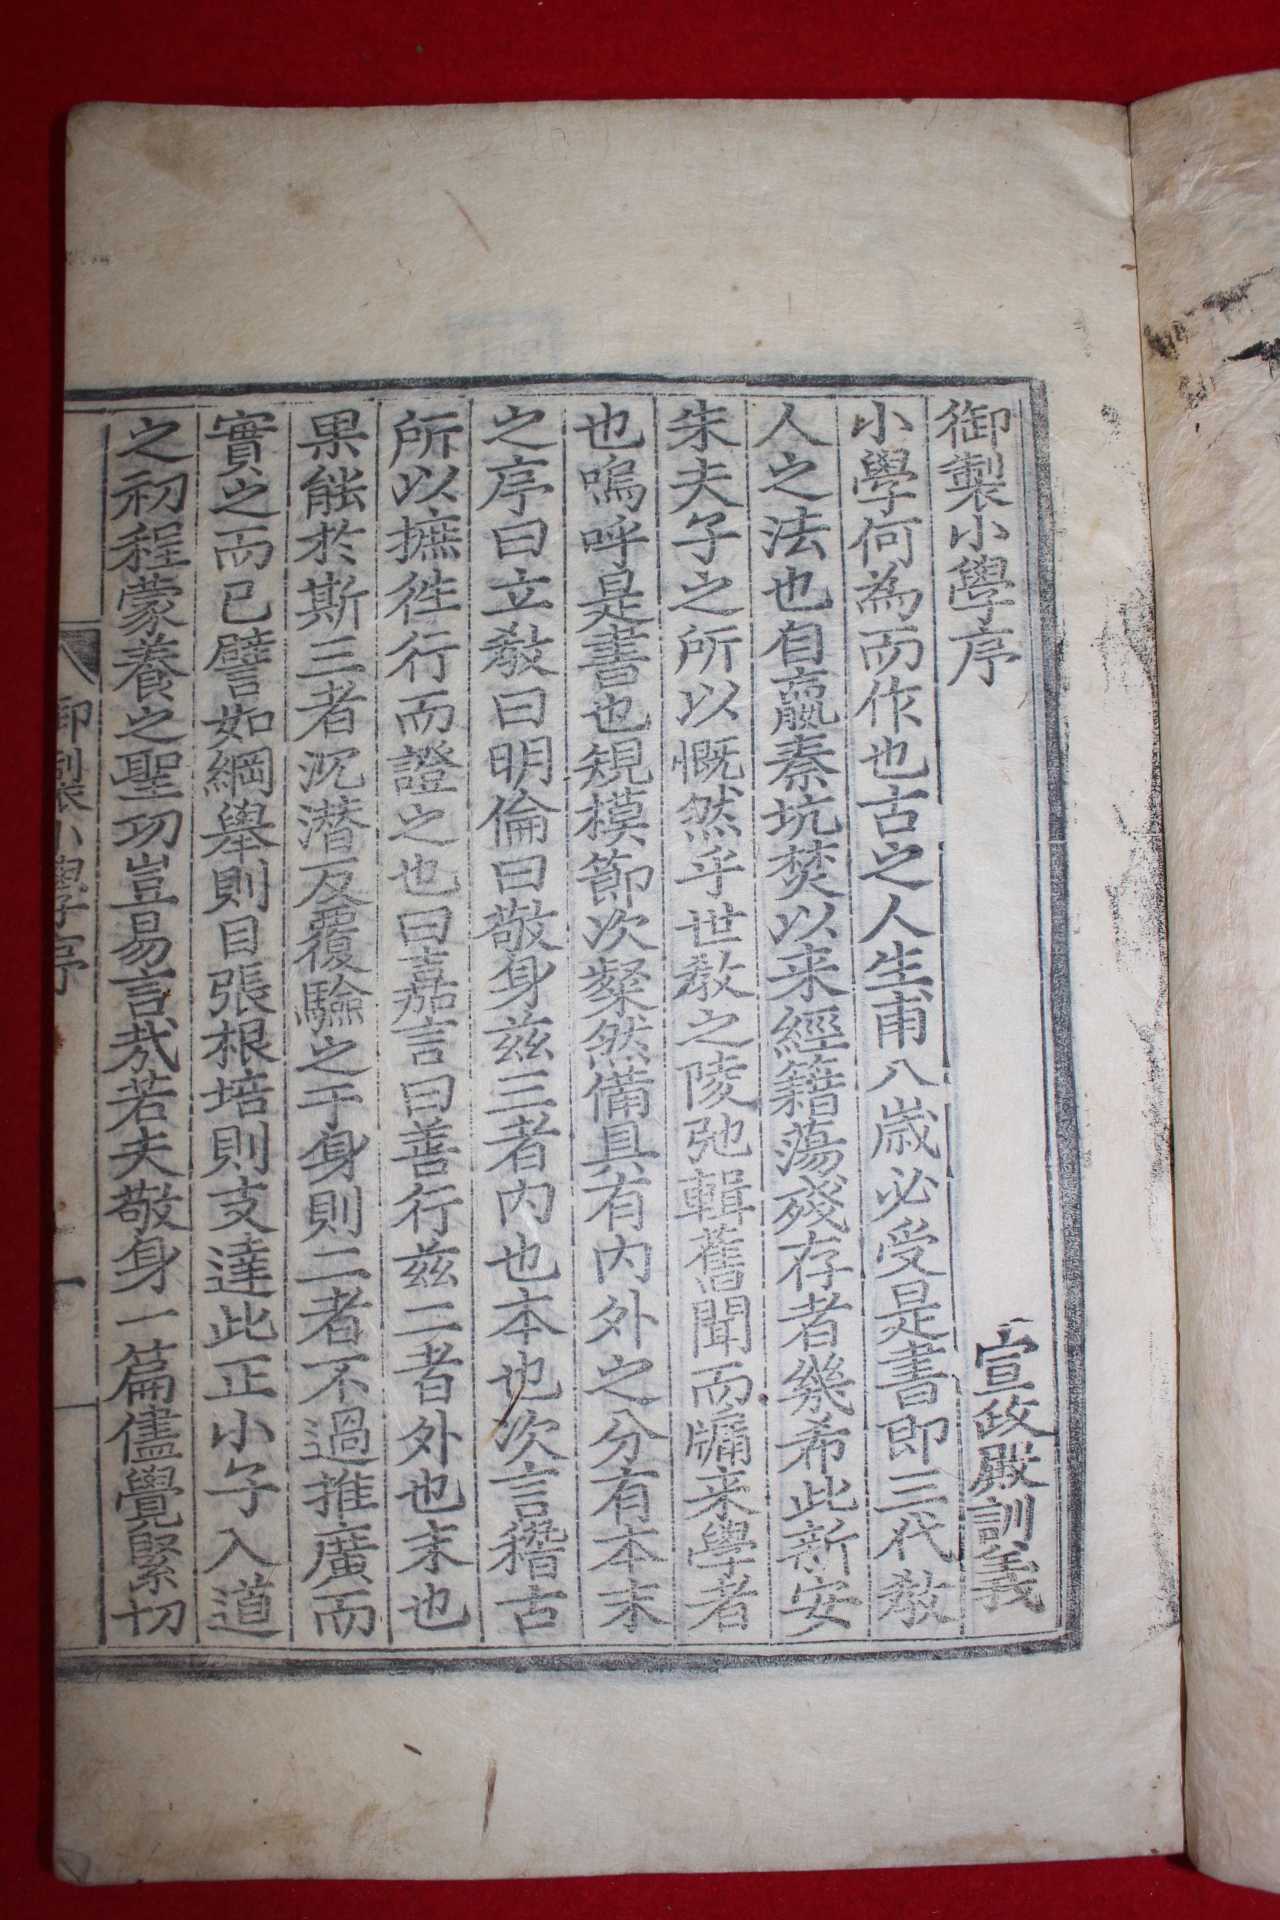 御製小學序
宣政殿訓義
小學何為而作也古之人生甫八歲必受是書即三代敎
人之法也自嬴秦坑焚以来經籍蕩殘存者幾希此新安
朱夫子之所以慨然乎世敎之陵弛輯舊聞而牗来學者
也嗚呼是書也規模節次粲然備具有內外之分有本末
之序曰立敎曰明倫曰敬身兹三者內也本也次言稽古
所以摭徃行而證之也曰嘉言曰善行兹二者外也末也
果能於斯三者沉潜反覆驗之于身則二者不過推廣而
實之而已譬如綱舉則目張根培則支達此正小子入道
之初程蒙養之聖功豈易言㦲若夫敬身一篇儘覺緊切
御製小學序 一